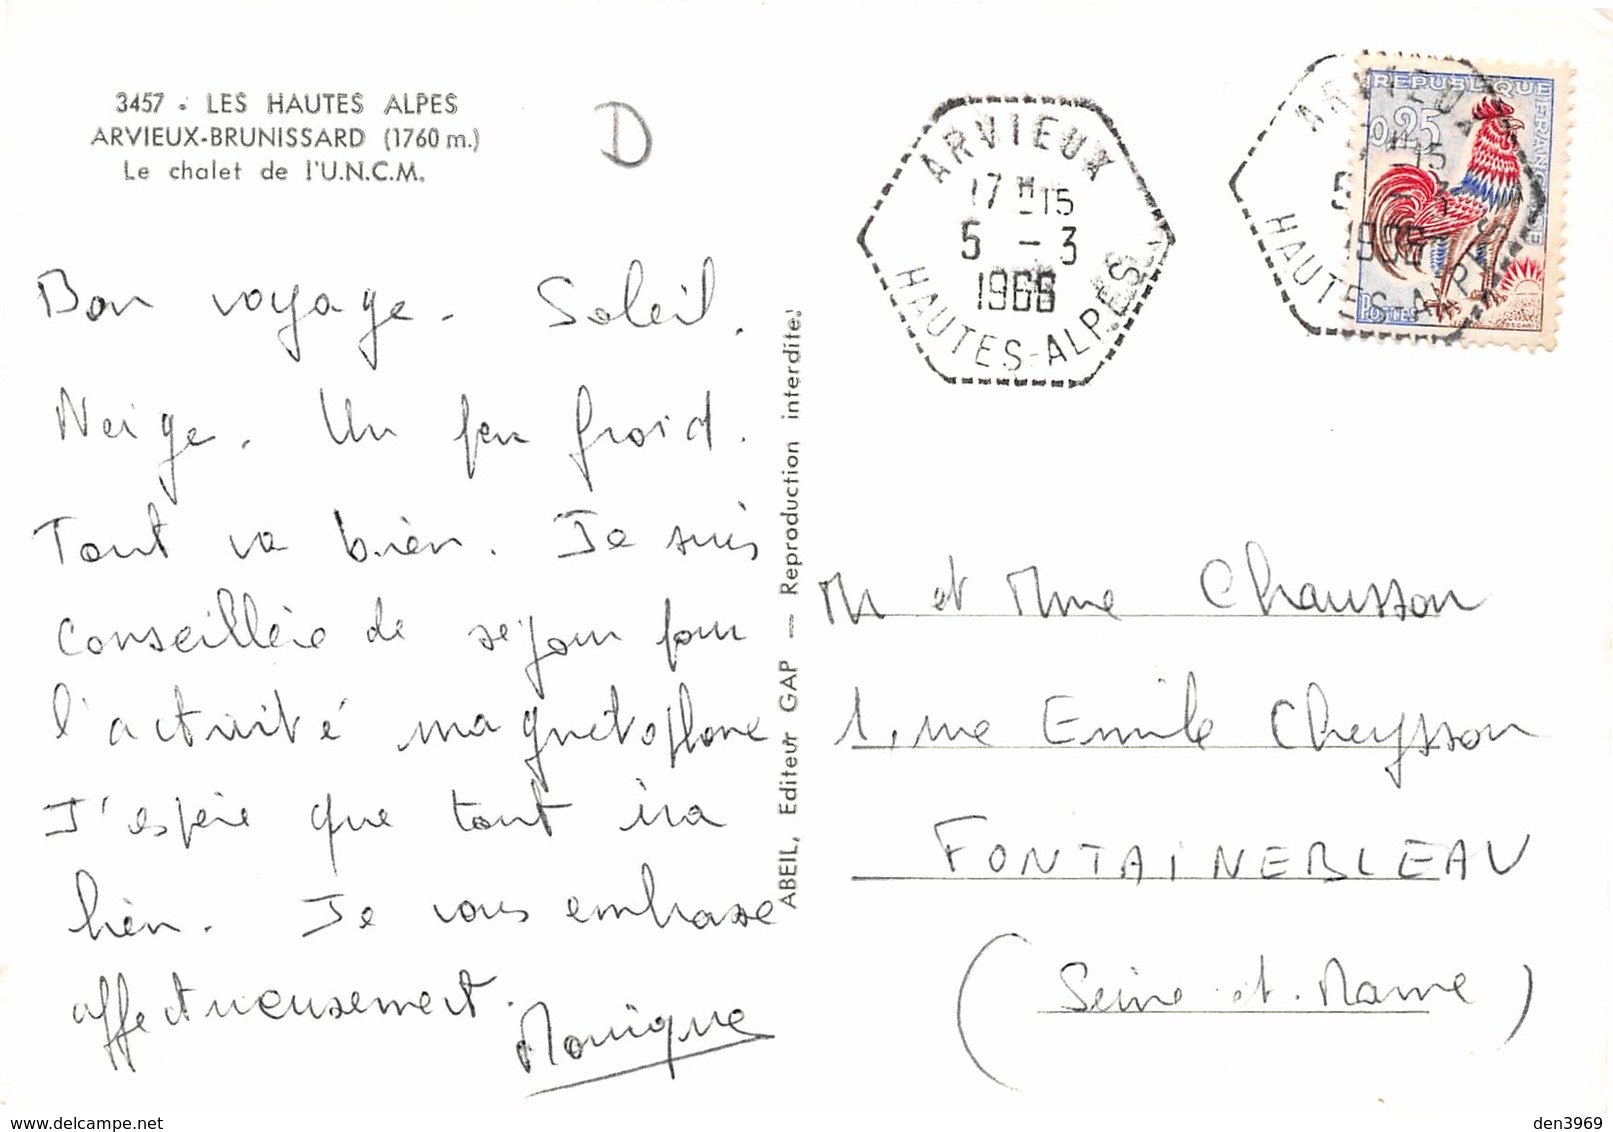 3457 - LES HAUTES ALPES
ARVIEUX-BRUNISSARD (1760 m.)
Le chalet de l'U.N.C.M.
D
Bon voyage. Soleil.
Neige. Un peu froid.
Tout va bien. Je suis
conseillère de séjour pour
l'activité magnétophone
J'espère que tout ira
bien. Je vous embrasse
affectueusement.
Monique
ABEIL, Editeur GAP — Reproduction interdite.
ARVIEUX
17 H 15
5 - 3
1966
HAUTES-ALPES
ARVIEUX
HAUTES-ALPES
REPUBLIQUE FRANÇAISE
0,25
POSTES
DECARIS
M et Mme Chausson
1, rue Emile Cheysson
FONTAINEBLEAU
(Seine-et-Marne)
delcampe.net
den3969